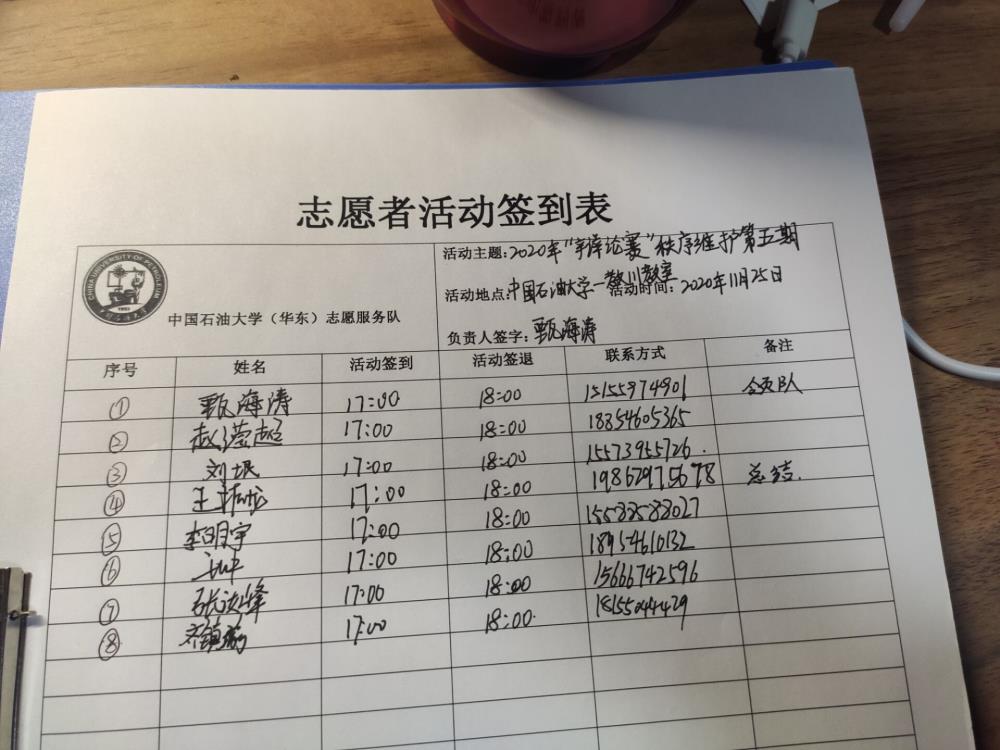 志愿者活动签到表
活动主题:2020年"辩论赛"秩序维护第五期
CHINA UNIVERSITY OF PETROLEUM
1953
中国石油大学(华东)志愿服务队
活动地点:中国石油大学 教室 活动时间: 2020年11月25日
负责人签字: 甄海涛
序号 姓名 活动签到 活动签退 联系方式 备注
① 甄海涛 17:00 18:00 15155974901 领队
② 17:00 18:00 18354605365
③ 刘垠 17:00 18:00 15573955726.
④ 17:00 18:00 19862975678 总结.
⑤ 李明宇 17:00 18:00
⑥ 17:00 18:00 18954610132
⑦ 17:00 18:00 15666742596
⑧ 17:00 18:00. 18155044429